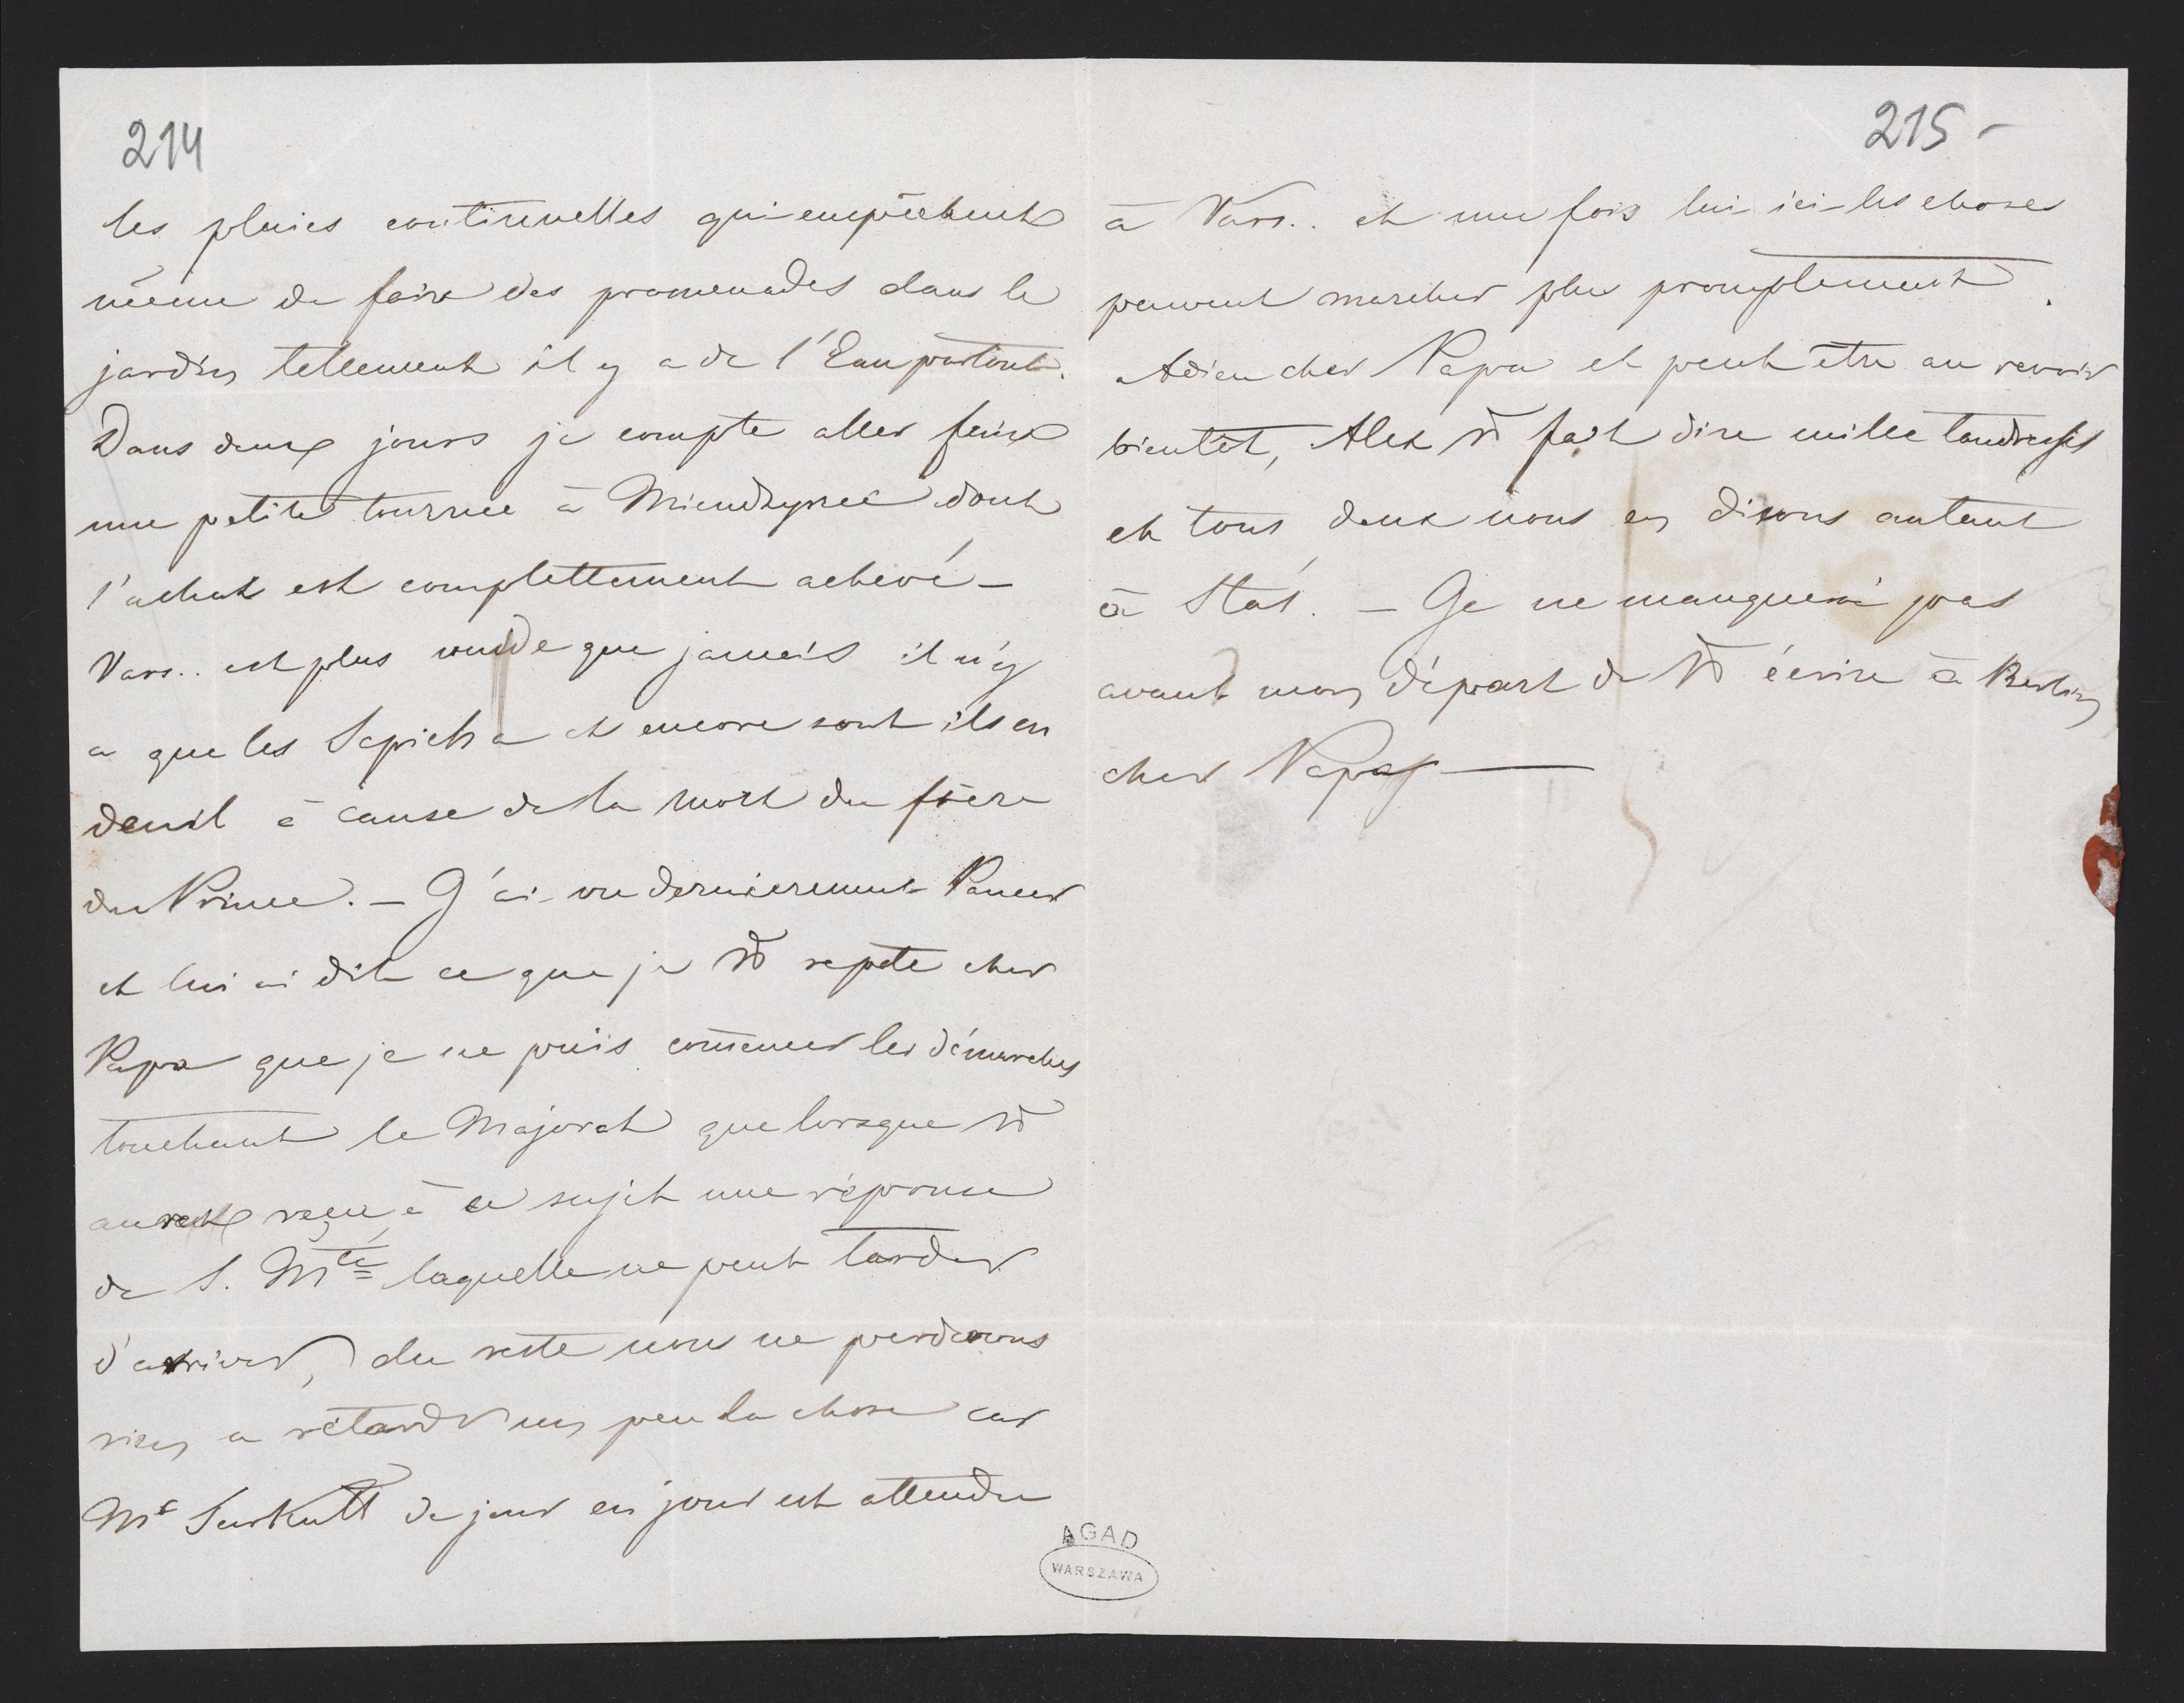 214
les pluies continuelles qui empèchent
même de faire des promenades dans le
jardin tellement il y a de l'Eau partout.
Dans deux jours je compte aller faire
une petite tournée à Miendzyrzeć dont
l'achat est complettement achevé –
Vars.. est plus vuide que jamais il n'y
a que les Sapieha et encore sont ils en
deuil à cause de la mort du frère
du Prince. – J'ai vu dernierement Pancer
et lui ai dit ce que je V̄s repete cher
Papa que je ne puis com̄encer les démarches
touchant le Majorat que lorsque V̄s
aurez reçu à ce sujet une réponse
de S. M^té laquelle ne peut tarder
d'arriver, du reste nous ne perdrons
rien a retarder un peu la chose car
Mr Turkułł de jour en jour est attendu
AGAD
WARSZAWA
215 –
à Vars.. et une fois lui ici les choses
peuvent marcher plus promptement.
Adieu cher Papa et peut être au revoir
bientôt, Alex V̄s fait dire mille tendresses
et tous deux nous en disons autant
à Staś. – Je ne manquerai pas
avant mon départ de V̄s écrire à Berlin
cher Papa —